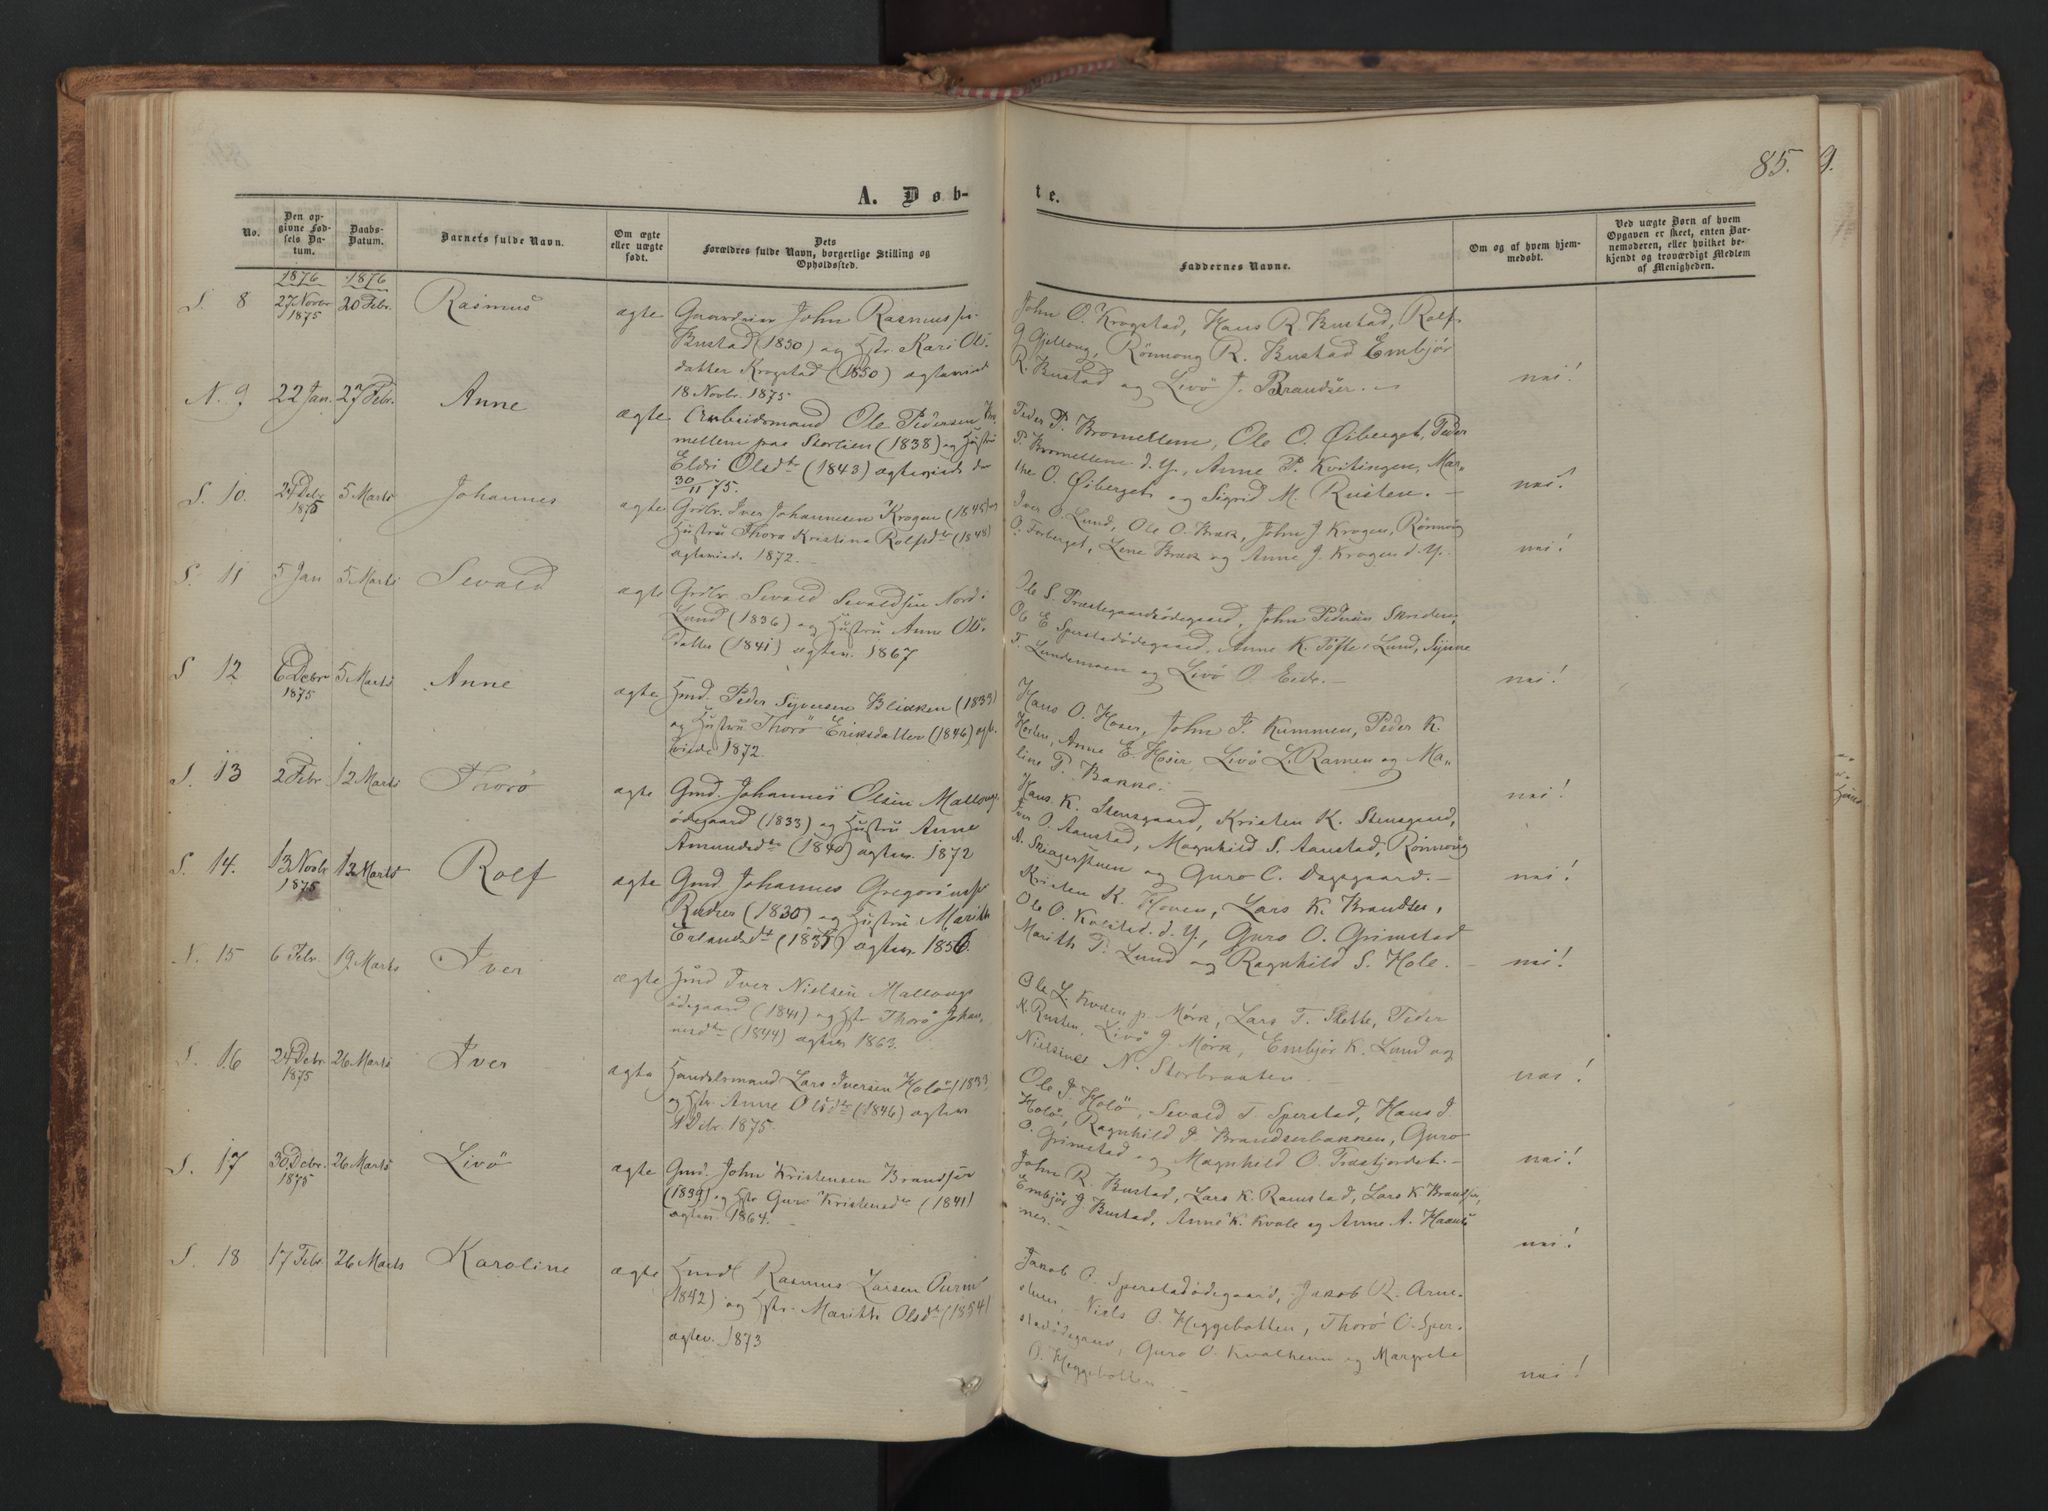 85. 9.
A. Døb-
te.
No.
Den op-
givne Fød-
sels Da-
tum.
Daabs-
Datum.
Barnets fulde Navn.
Om ægte
eller uægte
født.
Dets
Forældres fulde Navn, borgerlige Stilling og
Opholdssted.
Faddernes Navne.
Om og af hvem hjem-
medøbt.
Ved uægte Børn af hvem
Opgaven er skeet, enten Bar-
nemoderen, eller hvilket be-
kjendt og troværdigt Medlem
af Menigheden.
1876 1876
S. 8 27 Novbr 1875 20 Febr. Rasmus ægte
Gaardeier John Rasmussen
Bustad (1830) og Hstr. Kari Ols-
datter Krogstad (1850) ægteviede
18 Novbr. 1875
John O. Krogstad, Hans R. Bustad, Rolf
G Gjellong, Rønnoug R. Bustad Embjør
R. Bustad og Livö J. Brandser.
nei!
N. 9 22 Jan. 27 Febr. Anne ægte
Arbeidsmand Ole Pedersen Bro-
mellem paa Storlien (1838) og Hustru
Eldri Olsdtr (1843) ægteviede den
30/11 75.
Peder P. Bromellem, Ole O. Øiberget, Peder
P. Bromellem d. Y., Anne P. Kvitingen, Mar-
the O. Øiberget og Sigrid M. Rusten. -
nei!
S. 10. 24 Debr 1875 5 Marts Johannes ægte
Grdbr. Iver Johannesen Krogen (1845) og
Hustru Thora Kristina Rolfsdtr (1848)
ægteviede 1872. -
Iver O. Lund, Ole O. Bræk, John J Krogen, Rønnoug
O. Forberget, Lene Bræk og Anne J. Krogen d. Y.
nei!
S. 11 5 Jan 5 Marts Sevald ægte
Grdbr Sevald Sevaldsen Nordi
Lund (1836) og Hustru Anne Ols-
datter (1841) ægtev. 1867
Ole S. Præstegaardsødegaard, John Pedersen Skriden,
Ole E Sperstadødegaard, Anne K. Tofte i Lund, Synne
T. Lundemoen og Livö O. Eide. -
nei!
S 12 6 Debr 1875 5 Marts Anne ægte
Hmd. Peder Syversen Blikken (1833)
og Hustru Thorö Eriksdatter (1846) ægte-
viede 1872.
Hans O. Hoser, John J. Kummen, Peder K.
Horten, Anne E. Hoser, Livö L. Ramen og Ma-
line P. Bakke. -
nei!
S. 13 2 Febr 12 Marts Thorö ægte
Gmd. Johannes Olsen Mallongs
ødegaard (1833) og Hustru Anne
Amundsdtr (1840) ægtev. 1872
Hans K. Stensgaard, Kristen K. Stensgaard,
Iver O. Aanstad, Magnhild S. Aanstad, Rønnoug
A. Skagerstuen og Guro O. Dagsgaard. -
nei!
S. 14. 13 Novbr 1875 12 Marts Rolf ægte
Gmd. Johannes Gregoriussen
Rudser (1830) og Hustru Marith
Erlandsdt (1835) ægtev. 1856
Kristen K. Hoven, Lars K. Brandser,
Ole O. Kvistad. d. Y., Guro O. Grimstad
Marith T. Lund og Ragnhild S. Hole. -
nei!
N. 15 6 Febr. 19 Marts Iver ægte
Hmd Iver Nielsen Mallongs
ødegaard (1841) og Hstr Thorö Johan-
nesdtr (1844) ægtev 1863.
Ole L. Kveen p. Mörk, Lars T. Slette, Peder
K. Rusten, Livö J. Mörk, Embjör K. Lund og
Nielsine N. Storbraaten.
nei!
S. 16 24 Debr. 1875 26 Marts Iver ægte
Handelsmand Lars Iversen Holö (1833)
og Hstr. Anne Olsdtr (1846) ægtev
1 Debr. 1875.
Ole J. Holö, Sevald T. Sperstad, Hans J.
Holö, Ragnhild J. Brandserbakken, Guro
O. Grimstad og Magnhild O. Træstjordet. -
nei!
S. 17 30 Debr. 1875 26 Marts Livö ægte
Gmd. John Kristensen Brandser
(1839) og Hstr Guro Kristensdtr (1841)
ægtev. 1864. -
John R. Bustad, Lars K. Ramstad, Lars K Brandser,
Embjør J. Bustad, Anne K. Kvale og Anne A. Haans-
ner. -
nei!
S. 18 17 Febr. 26 Marts Karoline ægte
Hmd Rasmus Larsen Aurmo
(1842) og Hstr. Marith Olsdtr (1854)
ægtev. 1873
Jakob O. Sperstadødegaard, Jakob R. Arne-
stuen, Niels O. Heggebotten, Thorö O. Sper-
stadødegaard, Guro O. Kvalheim og Margrete
O. Heggebotten. -
nei!